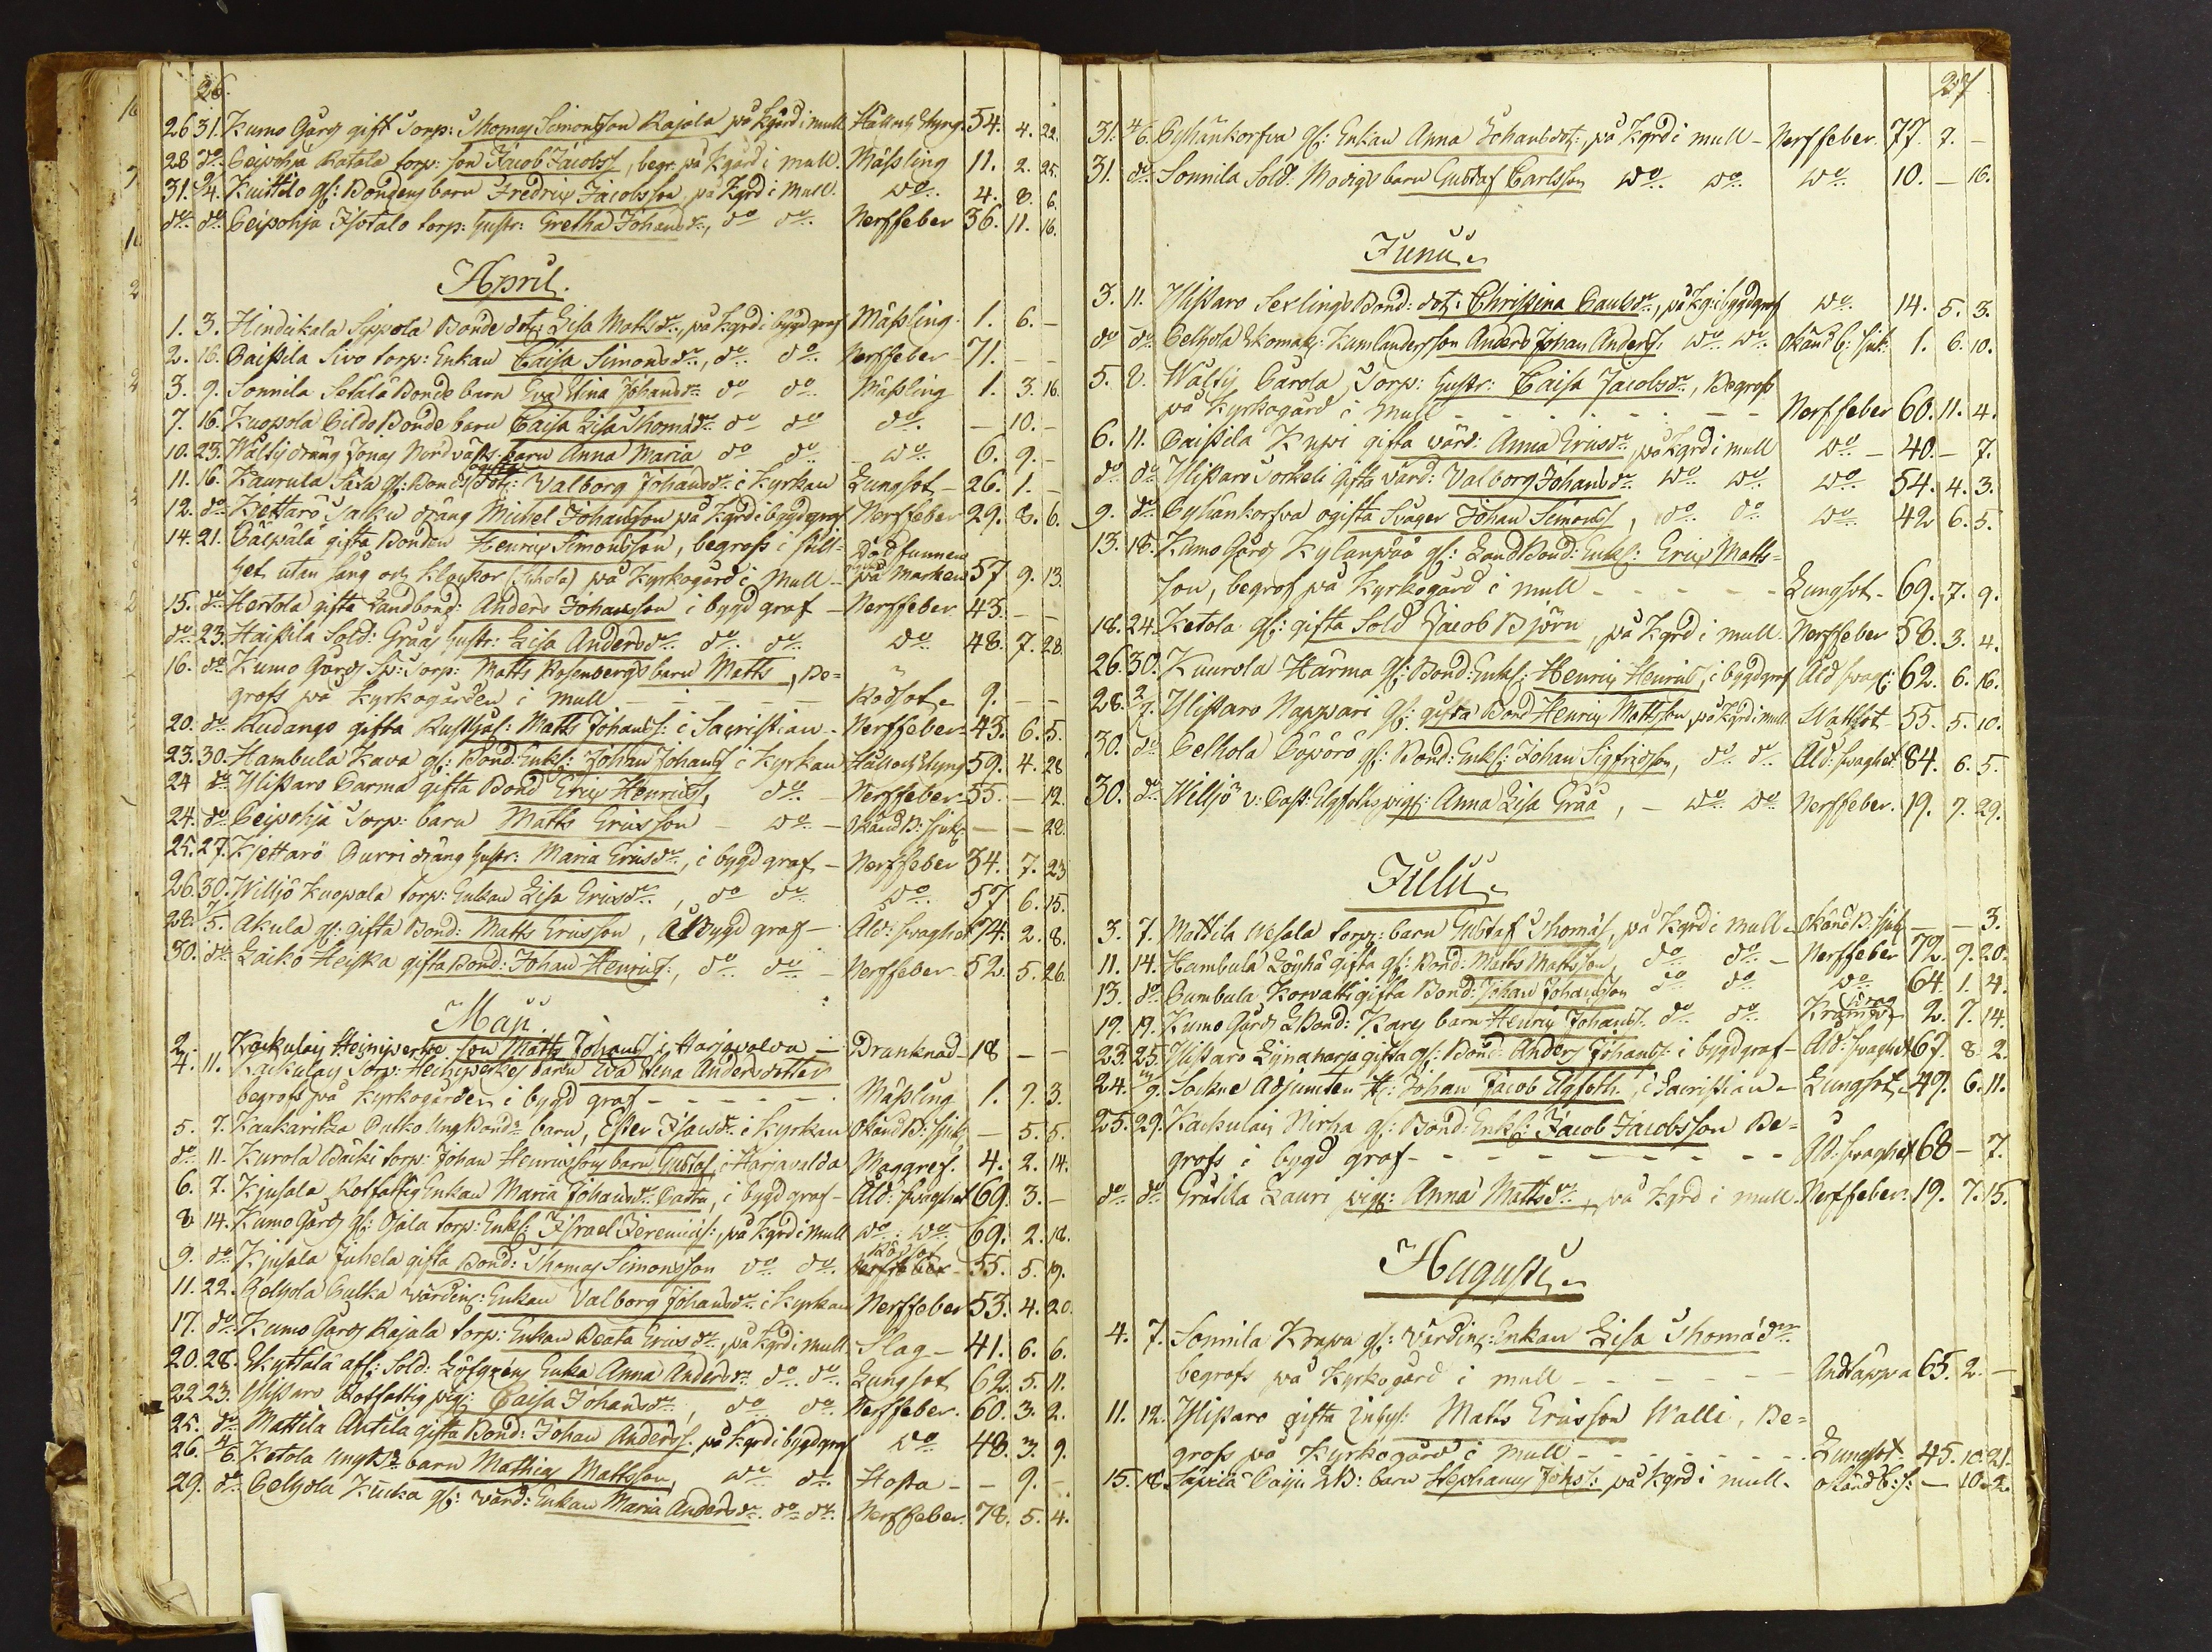 26.
26 31. Kumo Gårds gift Torp: Thomas Simonsson Rajala på Kgård i mull Håll och Styng 54. 4. 22.
28 do Peipohja Ratala torp: son Jacob Jacobss, begr. på Kgård i mull. Mässling 11. 2. 25.
31. 2/4. Kuittilo gl: Bondens barn Fredrix Jacobsson på Kgrd i mull. do 4. 8. 6.
do do Peipohja Isotalo torp: hustr: Gretha Johansdr, do do Nerffeber 36. 11. 16.
April.
1. 3. Hindikala Sppola Bonde dot: Lisa Mattsdr, på Kgrd i bygd graf Mässling 1. 6. -
2. 16. Paistila Sivo torp: Enkan Caisa Simonsdr, do do Nerffeber 71. - -
3. 9. Sonnila Setälä Bonde barn Eva Stina Johansdr do do Mässling 1. 3. 16.
7. 16. Kuopola Pildo Bonde barn Caisa Lisa Thomädr do do do - 10. -
10. 23. Wälsy dräng Jonas Nordväss barn Anna Maria do do do 6. 9. -
11. 16. Kaurula Sasa gl: Bond: ogifta dot: Valborg Johansdr i Kyrkan Lungsot 26. 1. -
12. do Kiettarö Jaaku dräng Michel Johansson på Kgrd i bygd graf Nerffeber 29. 8. 6.
14. 21. Päipälä gifta Bonden Henrix Simonsson, begrofs i stil-
het utan sång och klockor (Juhola) på Kyrkogård i Mull Död funnen på marken 57 9. 13.
15. do Hertola gifta Landbond: Anders Johansson i bygd graf Nerffeber 43. - -
do 23. Haistila Sold: Grååss hustr: Lisa Andersdr do do do 48. 7. 28.
16. do Kumo Gårds Sp: Torp: Matts Rosenbergs barn Matts, Be-
grofs på Kyrkogården i Mull Rödsot 9. - -
20. do Rudango gifta Rusthål: Matts Johanss: i Sacristian Nerffeber 43. 6. 5.
23. 30. Hambula Kava gl: Bond: Enkl: Johan Johanss i Kyrkan Håll och Styng 59. 4. 28
24 do Ylistaro Parma gifta Bond Erix Henricss, do Nerffeber 55. - 12.
24. do Peipohja Torp: barn Matts Ericsson do Okänd B: sjukd - - 28.
25. 27. Kjettarö Purri dräng hustr: Maria Ericsdr, i bygd graf Nerffeber 34. 7. 23
26. 30. Williö Kuopala torp: Enkan Lisa Ericsdr, do do do 57 6. 15.
28. 7/5. Akula gl: gifta Bond: Matts Ericsson, å Bygd graf Åld: svaghet 74. 2. 8.
30. do Laikö Heiska gifta Bond: Johan Henricss:, do do Nerffeber 52. 5. 26.
Maji.
2. Kaukulais Heinperkes son Matts Johanss i Harjavalda Dranknad 18 - -
4. 11. Kaukulais Torp: Heinperkes barn Eva Stina Andersdotter
begrofs på Kyrkogården i bygd graf Mässling 1. 7. 3.
5. 7. Kaukaritza Putko Ung Bonds barn, Ester Isacsdr i Kyrkan Okänd B: sjukd - 5. 5.
do 11. Kurola Bäcki torp: Johan Henricssons barn Gustaf i Harjavalda Maggref. 4. 2. 14.
6. 7. Kjusala Rotfattig Enkan Maria Johansdr Pattu, i bygd graf Åld: svaghet 69. 3. -
8 14. Kumo Gårds gl: Ojala torp: Enkl: Israel Jeremiæss:, på Kgrd i mull do do 69. 2. 18.
9. do Kjusala Juhela gifta Bond: Thomas Simonsson do do Rödsot 55. 5. 19.
11. 22. Pelhola Pulka värdins: Enkan Valborg Johansdr i Kyrkan Nerffeber 53. 4. 20.
17. do Kumo Gårds Rajala torp: Enkan Beata Ericsdr, på Kgrd i mull Slag 41. 6. 6.
20. 28. Skyttalä afsk: Sold: Löfgrens Enka Anna Andersdr do do Lungsot 62. 5. 11.
22 23. Ylistaro Rotfattig pig: Caisa Johansdr, do do Nerffeber. 60. 3. 2.
25. do Mattila Antila gifta Bond: Johan Anderss: på Kgrd i bygd graf do 48. 3. 9.
26. 4/6. Ketola Ung Bds barn Mathias Mattsson, do do Hosta - 9. -
29. do Pelhola Kiuka gl: värd: Enkan Maria Andersdr. do do Nerffeber 78. 5. 4.
27
31. 4/6. Pyhänkorfva gl: Enkan Anna Johansdot:, på Kgrd i mull Nerffeber. 77. 7. -
31. do Sonnila Sold: Modigs barn Gustaf Carlsson do do do 10. - 16.
Junii.
3. 11. Ylistaro Sexlings Bond: dot: Christina Paulsdr, på Kg: i bygd graf do 14. 5. 3.
do do Pelhola Skomak: Kumlandersson Anders Johan Anderss: do do Okänd b: sjuk: 1. 6. 10.
5. 8. Wälsy Parola Torp: hustr: Caisa Jacobsdr, Begrofs
på Kyrkogård i Mull Nerffeber 60. 11. 4.
6. 11. Paistila Knypi gifta värd: Anna Ericsdr, på Kgrd i mull do 40. - 7.
do do Ylistaro Torkeli gifta värd: Valborg Johansdr do do do 54. 4. 3.
9. do Pyhänkorfva ogifta Svåger Johan Simonss, do do do 42 6. 5.
13. 18. Kumo Gårds Kylänpää gl: Land Bond: Enkl: Erix Matts-
son, begrof på Kyrkogård i mull Lungsot 69. 7. 9.
18. 24. Ketola gl: gifta Sold Jacob Björn, på Kgrd i mull. Nerffeber 58. 3. 4.
26. 30. Kuurola Härmä gl: Bond: Enkl: Henrix Henrics, i bygd graf Åld svagh: 62. 6. 16.
28. 2/7. Ylistaro Nappari gl: gifta Bond Henrix Mattsson, på Kgrd i mull Wattsot 55. 5. 10.
30. do Pelhola Cöpörö gl: Bond: Enkl: Johan Sigfridsson, do do Åld: svaghet 84. 6. 5.
30. do Williö v: Past: Elgfoths pig: Anna Lisa Gråå, do do Nerffeber. 19. 7. 29.
Julii.
3. 7. Mattila Wesala torp: barn Gustaf Thomäs, på Kgrd i mull Okänd B: sjuk - - 3.
11. 14. Hambula Löyhä gifta gl: Bond: Matts Mattsson, do do Nerffeber 72. 9. 20.
13. do Cumbula Korvatti gifta Bond: Johan Johansson do do do 64. 1. 4.
19. 19. Kumo Gårds L Bond: Kares barn Henrix Johanss: do do 2. 7. 14.
23. 25. Ylistaro Lynaharja gifta gl: Bond: Anders Johanss: i bygd graf Åld: svaghet 67. 8. 2.
24. Sockne Adjuncten H: Johan Jacob Elgfoth, i Sacristian Lungsot 49. 6. 11.
25. 29. Kaukulais Nirha gl: Bond: Enkl: Jacob Jacobsson Be-
grofs i bygd graf Åld: svaghet 68 - 7.
do do Gräsila Lauri pig: Anna Mattsdr, på Kgrd i mull. Nerffeber. 19. 7. 15.
Augusti.
4. 7. Sonnila Krapa gl: Värdins: Enkan Lisa Thomädr
begrofs på Kyrkogård i mull Andtäppa 65. 2. -
11. 12. Ylistaro gifta Inhys: Matts Ericsson Walli, Be-
grofs på Kyrkogård i mull Lungsot 45. 10. 21.
15. 18. Säpilä Paiju LB: barn Stephanus Johs: på Kgrd i mull. okänd b: s: - 10. 2.